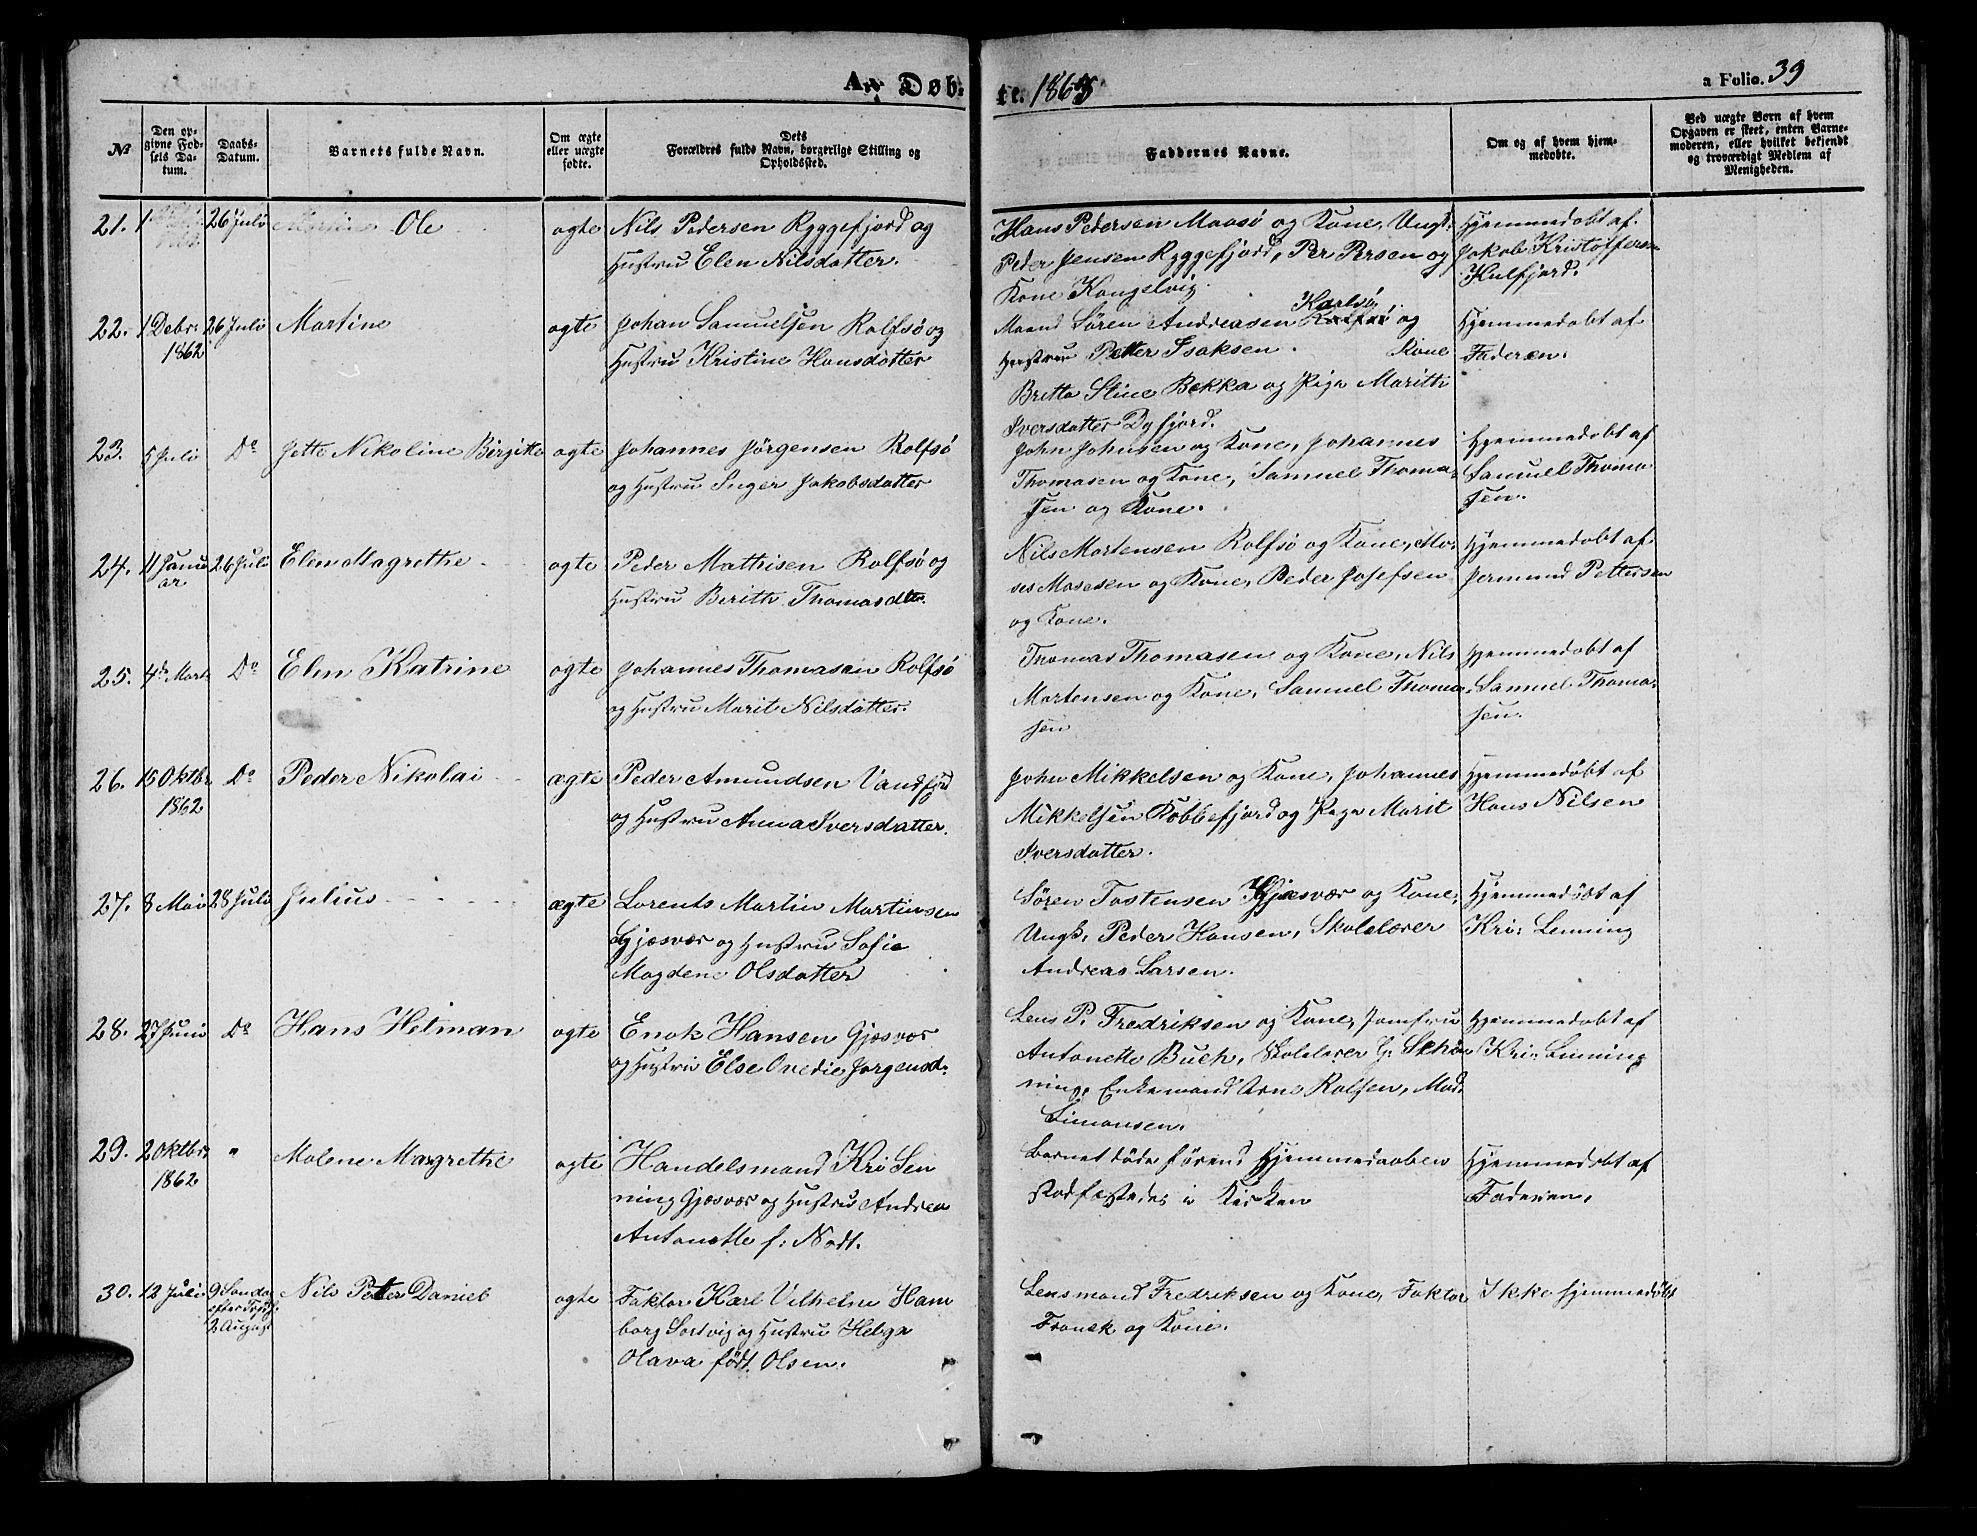 A. Døb-
te. 1863
a Folio. 39
No
Den op-
givne Fød-
sels Da-
tum.
Daabs-
Datum.
Barnets fulde Navn.
Om ægte
eller uægte
fødte.
Dets
Forældres fulde Navn, borgerligt Stilling og
Opholdssted.
Faddernes Navne.
Om og af hvem hjem-
medøbte.
Ved uægte Børn af hvem
Opgaven er skeet, enten Barne-
moderen, eller hvilket bekjendt
og troværdigt Medlem af
Menigheden.
21. 1 26 Juli Ole ægte Nils Pedersen Ryggefjord og
Hustru Elen Nilsdatter.
Hans Pedersen Maasø og Kone, Ungk.
Peder Jensen Ryggefjord, Per Persen og
Kone Kongelvig.
Hjemmedøbt af
Jakob Kristoffersen
Hulfjord.
22. 1 Debr. 26 Juli Martine ægte Johan Samuelsen Rolfsø og
1862 Hustru Kristine Hansdatter
Karlsø
Maand Søren Andreasen og
Hustru Petter Isaksen. Kone
Britta Stine Bekka og Pige Marith
Iversdatter Dyfjord.
Hjemmedøbt af
Faderen.
23. 5 Juli Do Jette Nikoline Birgitte ægte Johannes Jörgensen Rolfsø
og Hustru Inger Jakobsdatter
John Johnsen og Kone, Johannes
Thomasen og Kone, Samuel Thoma-
sen og Kone.
Hjemmedøbt af
Samuel Thoma
sen.
24. 11 Janu 26 Juli Elen Magrethe ægte Peder Mathisen Rolfsø og
ar Hustru Berith Thomasdtr.
Nils Mortensen Rolfsø og Kone, Mo-
ses Mosesen og Kone, Peder Josefsen
og Kone.
Hjemmedøbt af
Jermund Pettersen
25. 4de Marts Do Elen Katrine ægte Johannes Thomasen Rolfsø
og Hustru Marit Nilsdatter.
Thomas Thomasen og Kone, Nils
Mortensen og Kone, Samuel Thoma-
sen
Hjemmedøbt af
Samuel Thoma-
sen.
26. 15 Oktbr. Do Peder Nikolai ægte Peder Amundsen Vandfjord
1862 og Hustru Anna Iversdatter.
John Mikkelsen og Kone, Johannes
Mikkelsen Kobbefjord og Pige Marit
Iversdatter.
Hjemmedøbt af
Hans Nilsen
27. 8 Mai 28 Juli Julius ægte Lorents Martin Martinsen
Gjæsvær og Hustru Sofie
Magdene Olsdatter
Søren Tostensen Gjæsvær og Kone,
Ungk. Peder Hansen, Skolelærer
Andreas Larsen.
Hjemmedøbt af
Kri: Lenning
28. 27 Juni Do Hans Hetman ægte Enok Hansen Gjæsvær
og Hustru Else Ovedie Jørgensd.
Lens P. Fredriksen og Kone, Jomfru
Antonette Buch, Skolelærer G. Schøn
ning, Enkemand Arne Rolfsen, Mad.
Simonsen.
Hjemmedøbt af
Kri: Lenning
29. 2 Oktbr. " Malene Margrethe ægte Handelsmand Kri Len
1862 ning Gjæsvær og Hustru Andrea
Antonette f: Nodt.
Barnet døde førend Hjemmedaaben
stadfæstedes i Kirken
Hjemmedøbt af
Faderen.
30. 12 Juli 9 Søndag Nils Peter Daniel ægte Faktor Karl Vilhelm Ham
efter Tref.
2 August
borg Sortvig og Hustru Helga
Olava født Olsen.
Lensmand Fredriksen og Kone, Faktor
Franck og Kone.
Ikke hjemmedøbt